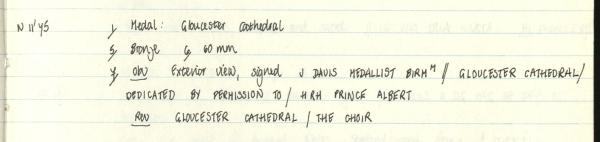 N 11'45 1, Medal: Gloucester Cathedral
5, Bronze 6, 60 mm
7, Obv Exterior view, signed J DAVIS MEDALLIST BIRMᴹ // GLOUCESTER CATHEDRAL/
DEDICATED BY PERMISSION TO / HRH PRINCE ALBERT
Rev GLOUCESTER CATHEDRAL / THE CHOIR